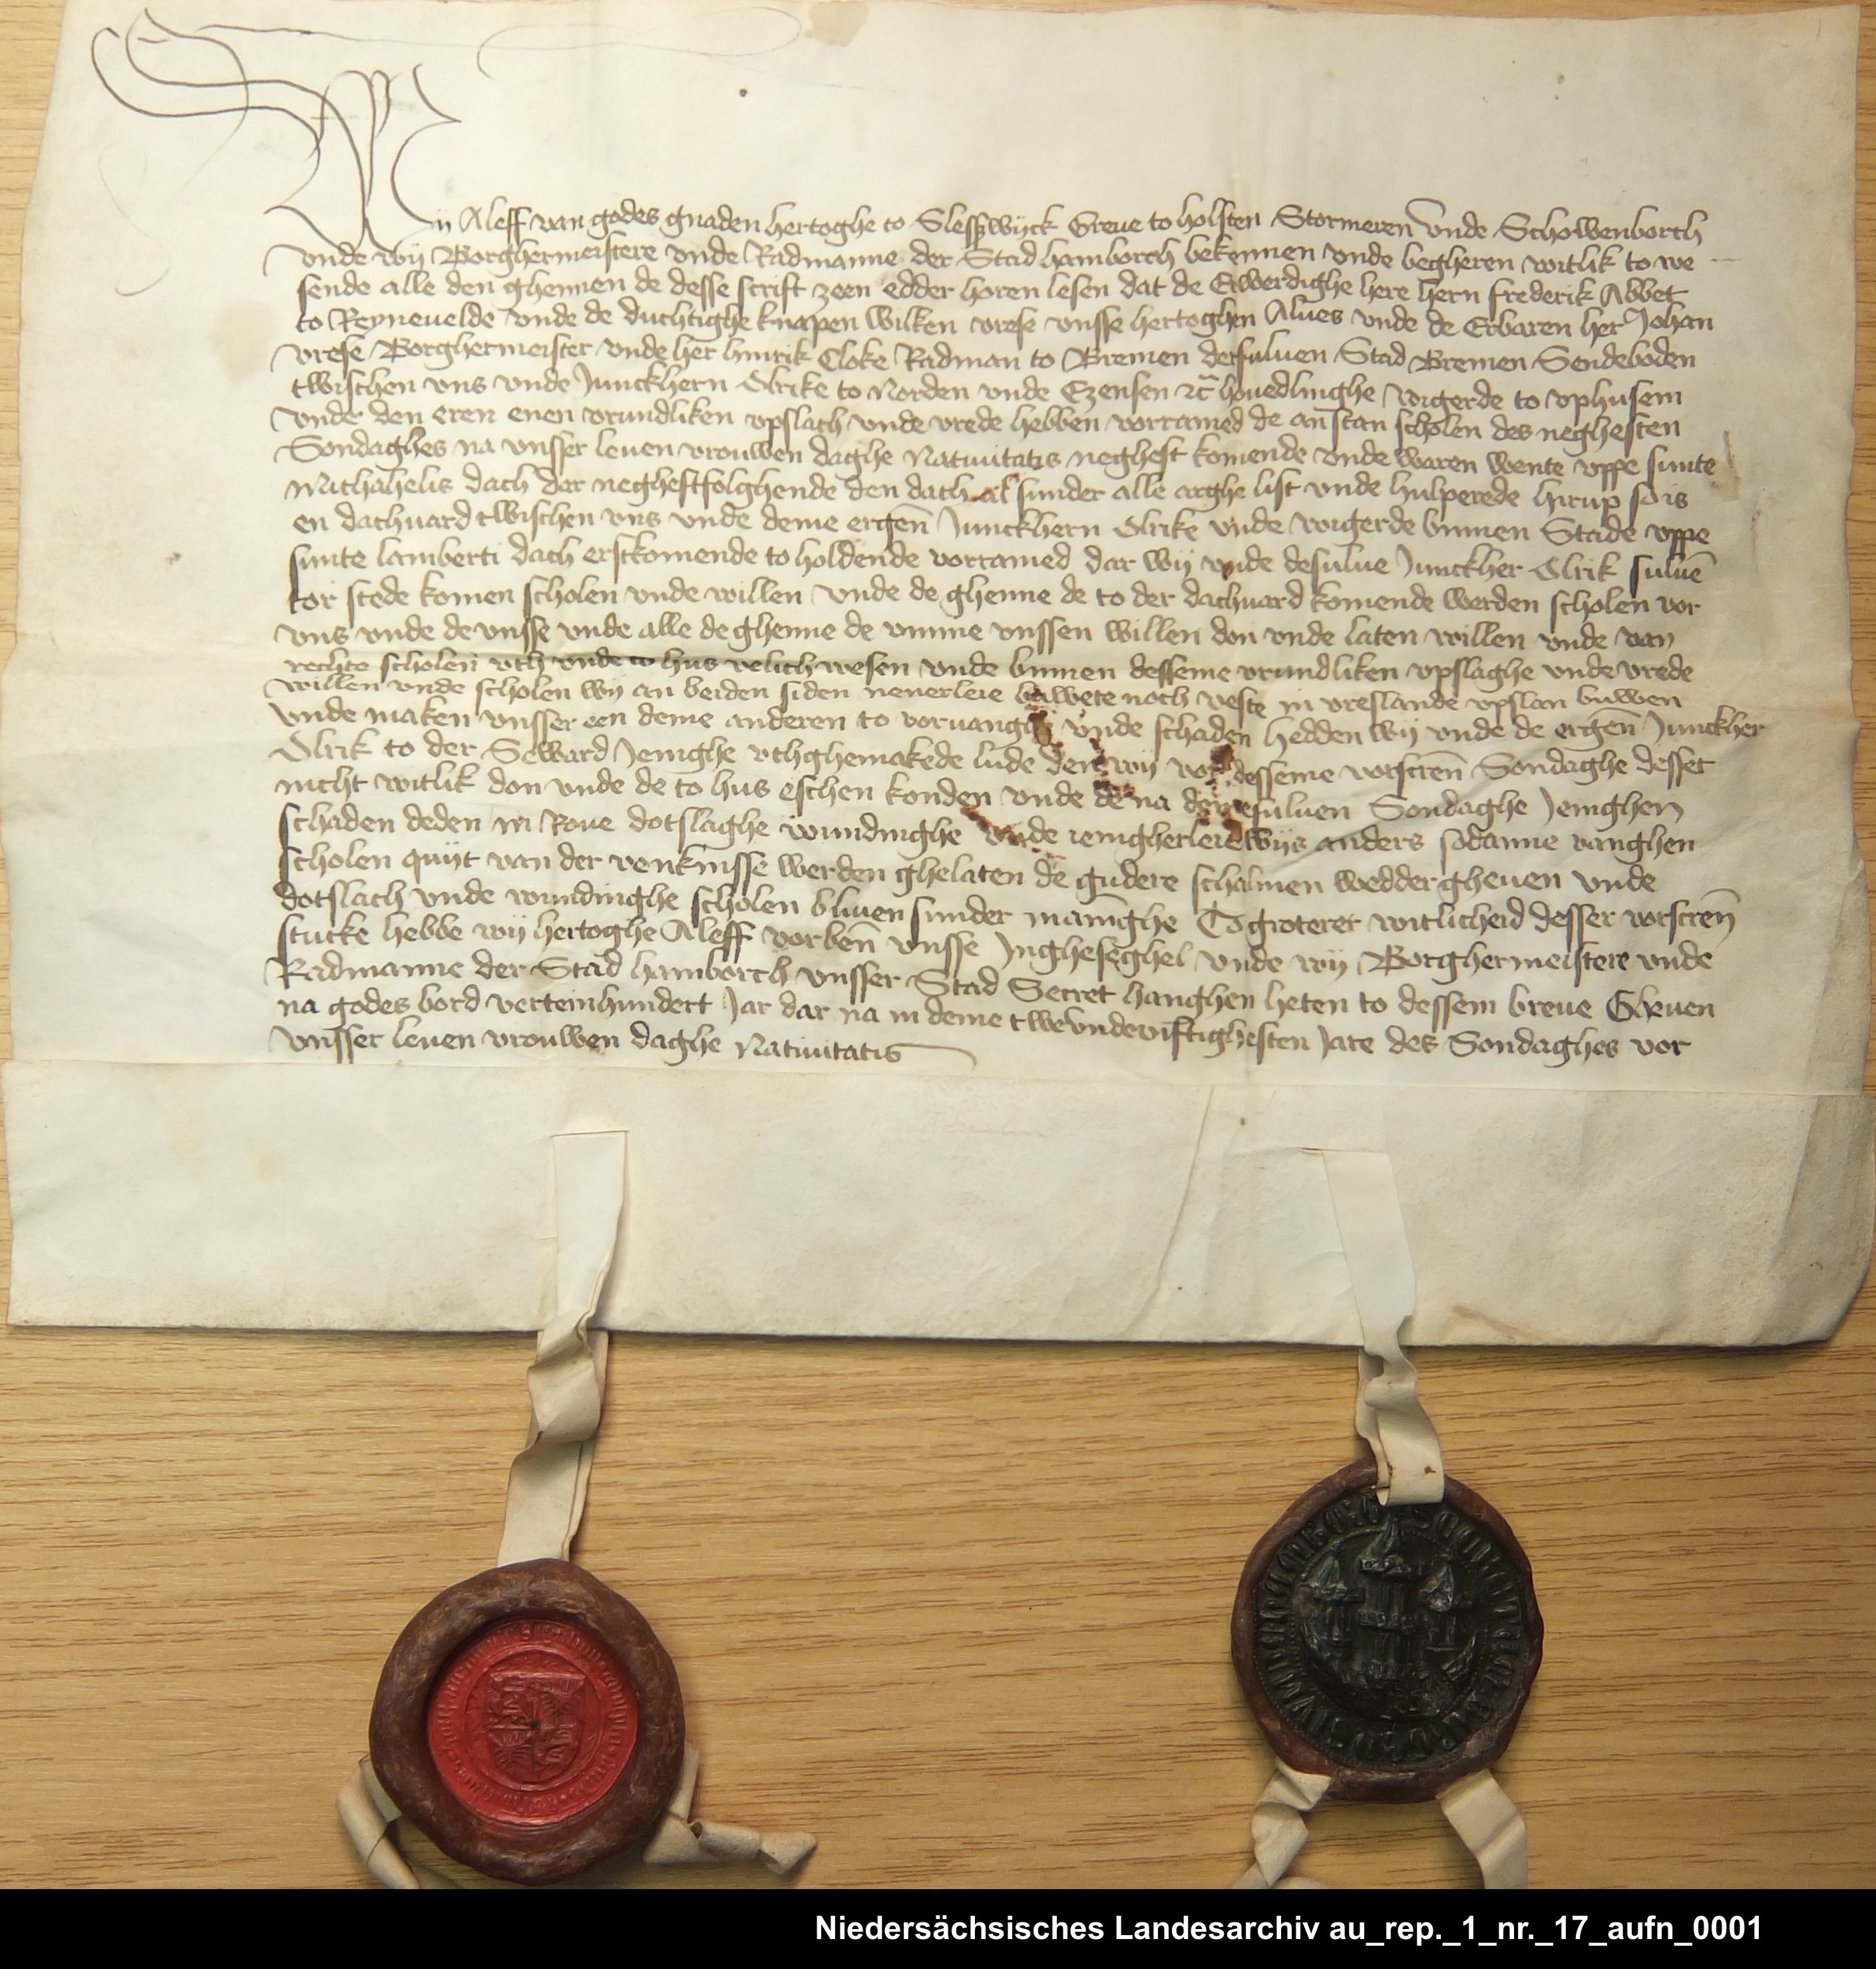 Wy Aleff van godes gnaden hertoghe to Slesszwijck Greue to holsten Stormeren vnde Schowenborch
vnde wy Borghermeistere vnde Radmanne der Stad hamborch bekennen vnde begheren witlik to we
sende alle den ghennen de desse scrift zeen edder horen lesen dat de Erwerdighe here hern frederik Abbet
to Reyneuelde vnde de duchtighe knapen wilken vrese vnsse hertoghen Alues vnde de Erbaren her Johan
vrese Borghermeister vnde her hinrik Cloke Radman to Bremen dersuluen Stad Bremen Sendeboden
twisschen vns vnde Junckhern Olrike to Norden vnde Ezensen ꝛc̄ houedlinghe wigerde to vphusem
vnder den eren enen vrundliken vpslach vnde vrede hebben vorramed de anstan scholen des neghesten
Sondaghes na vnser leuen vrouwen daghe Natiuitatis neghest komende vnde waren wente vppe sunte
Michahelis dach der neghestfolghende den dach al sunder alle arghe list vnde hulperede hirup so is
en dachuard twisschen vns vnde deme ergen̄ Junckhern Olrike vnde wigerde bynnen Stade vppe
sunte lamberti dach erstkomende to holdende vorramed dar wy vnde desulue Junckher Olrik suluē
tor stede komen scholen vnde willen vnde de ghenne de to der dachuard komende werden scholen vor
vns vnde de vnsse vnde alle de ghenne de vmme vnssen willen don vnde laten willen vnde van
rechte scholen vth vnde to hus velich wesen vnde bynnen desseme vrundliken vpslaghe vnde vrede
willen vnde scholen wy an beiden siden nenerleie buwete noch veste in vreslande vpslan buwen
vnde maken vnsser een deme anderen to voruanghe vnde schaden hedden wy vnde de ergen̄ Junckher
Olrik to der Seward Jenighe vthghemakede lude den wy vor desseme vorscren̄ Sondaghe desset
nicht witlik don vnde de to hus esschen konden vnde de na demesuluen Sondaghe Jenighen
schaden deden in Roue dotslaghe wundinghe vnde ienigherleie wijs anders sodanne vanghen
scholen quijt van der venknisse werden ghelaten de gudere schalmen wedder gheuen vnde
dotslach vnde wundinghe scholen bliuen sunder maninghe To groterer witlicheid desser vorscren̄
stucke hebbe wy hertoghe Aleff vorben̄ vnsse Jngheseghel vnde wy Borghermeistere vnde
Radmanne der Stad hamborch vnsser Stad Secret hanghen heten to dessem breue Gheuen
na godes bord verteinhundert Jar dar na in deme twevndeviftighesten Jare des Sondaghes vor
vnsser leuen vrouwen daghe Natiuitatis
Niedersächsisches Landesarchiv au_rep._1_nr._17_aufn_0001